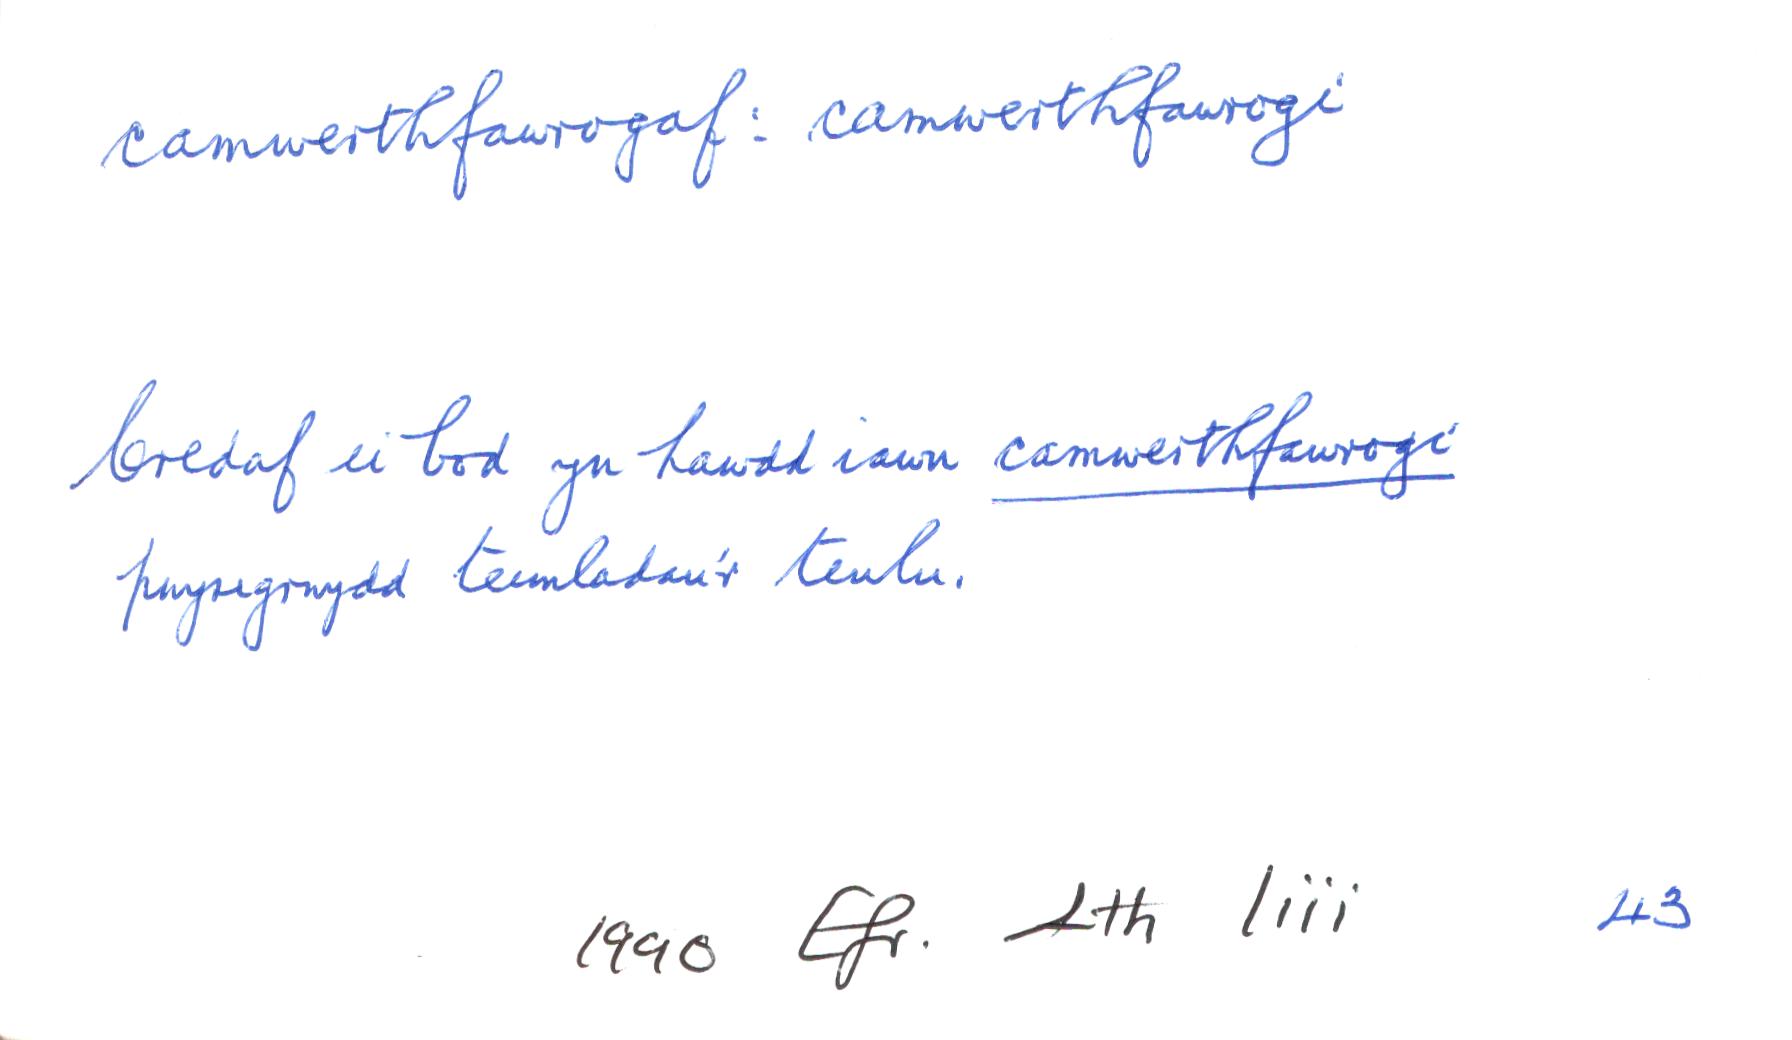 camwerthfawrogaf: camwerthfawrogi
Credaf ei bod yn hawdd iawn camwerthfawrogi
pwysigrwydd teimladau'r teulu.
1990 Efr. Lth liii 43